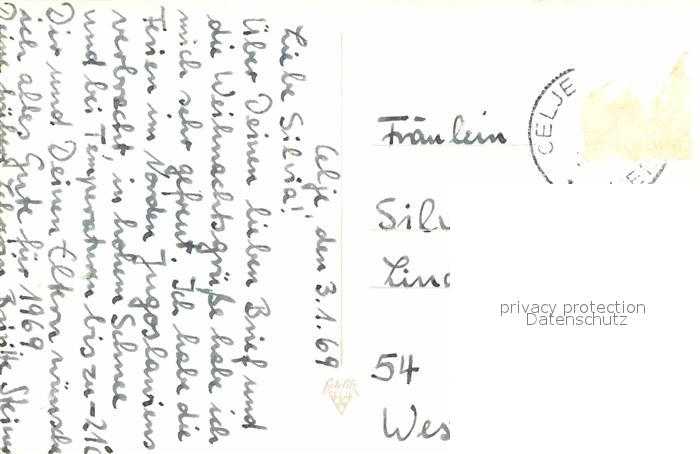 Celje, den 3.1.69
Liebe Silvia!
Über Deinen lieben Brief und
die Weihnachtsgrüße habe ich
mich sehr gefreut. Ich habe die
Ferien im Norden Jugoslawiens
verbracht, in hohem Schnee
und bei Temperaturen bis zu -21°
Dir und Deinen Eltern wünsche
ich alles Gute für 1969
Deine
Fräulein
Silv
Lind
54
Wes
CELJE
CELJE
privacy protection
Datenschutz